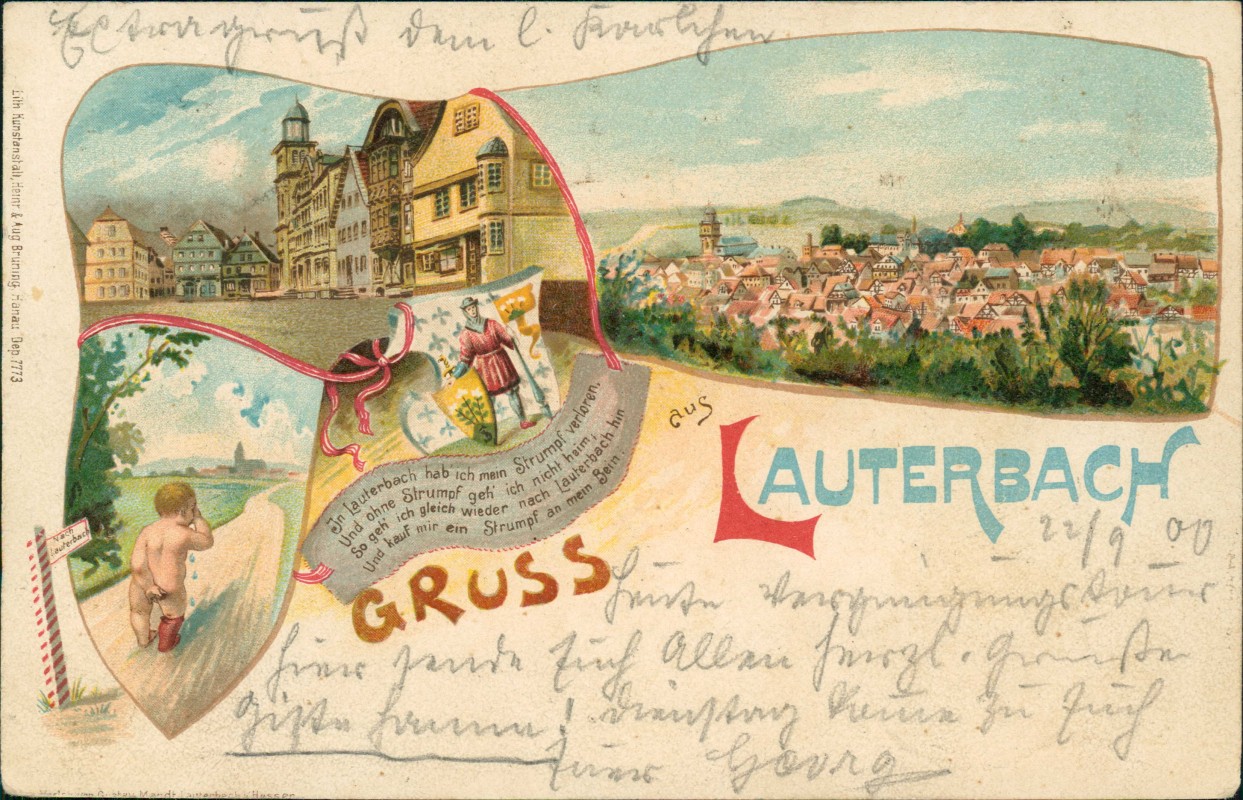 Extragruß dem l. Karlchen
Lith. Kunstanstalt, Heinr. & Aug. Brüning, Hanau Dep. 7773
In Lauterbach hab ich mein Strumpf verloren,
Und ohne Strumpf geh' ich nicht heim,
So geh' ich gleich wieder nach Lauterbach hin
Und kauf mir ein Strumpf an mein Bein
Nach
Lauterbach
GRUSS
aus
LAUTERBACH
22/9 00
Heute Vergnügungstour
hier sende Euch Allen herzl. Grüße
! Dienstag komme zu Euch
Euer Georg
Verlag von Gustav Mandt, Lauterbach i. Hessen